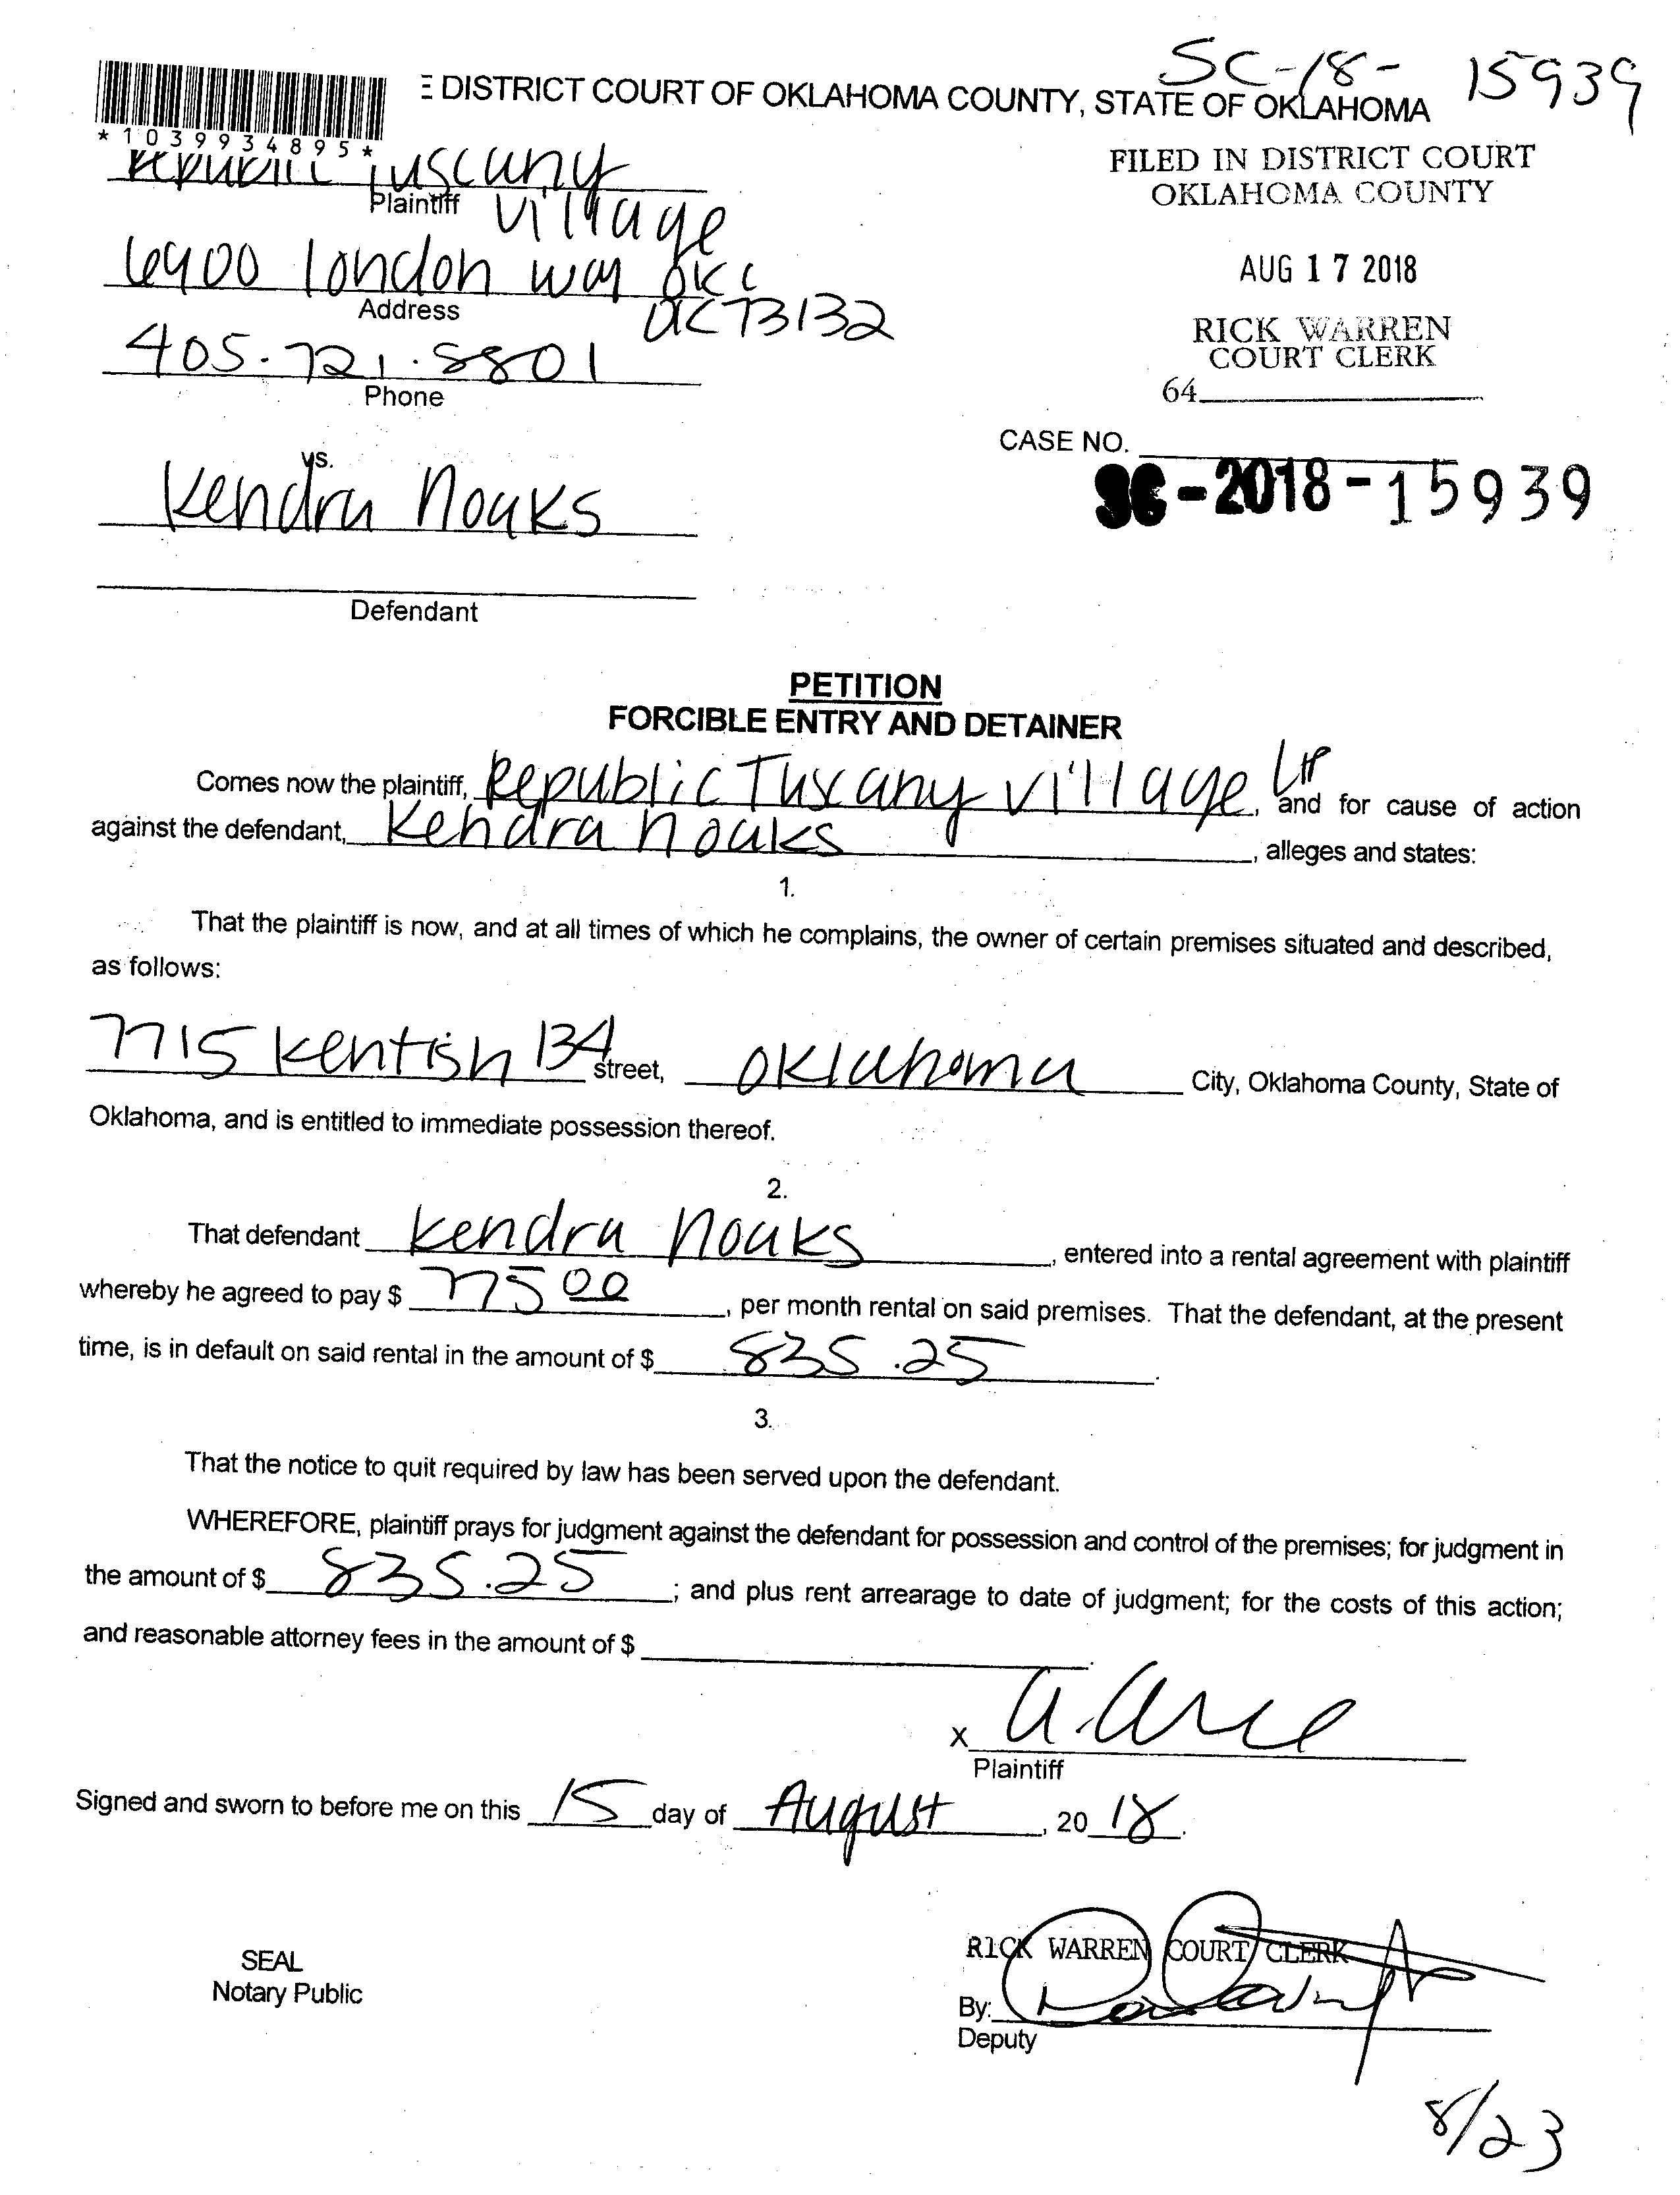 SC-18-15939
E DISTRICT COURT OF OKLAHOMA COUNTY, STATE OF OKLAHOMA
*1039934895*
Republic Tuscany
Plaintiff
Village
6900 london way OKC
Address
OK 73132
405.721.8801
Phone
FILED IN DISTRICT COURT
OKLAHOMA COUNTY
AUG 17 2018
RICK WARREN
COURT CLERK
64
vs.
CASE NO.
SC-2018-15939
Kendra Noaks
Defendant
PETITION
FORCIBLE ENTRY AND DETAINER
Comes now the plaintiff, Republic Tuscany Village LP, and for cause of action
against the defendant, Kendra Noaks, alleges and states:
1.
That the plaintiff is now, and at all times of which he complains, the owner of certain premises situated and described,
as follows:
7715 Kentish 134 street, Oklahoma City, Oklahoma County, State of
Oklahoma, and is entitled to immediate possession thereof.
2.
That defendant Kendra Noaks, entered into a rental agreement with plaintiff
whereby he agreed to pay $ 775 00, per month rental on said premises. That the defendant, at the present
time, is in default on said rental in the amount of $ 835.25.
3.
That the notice to quit required by law has been served upon the defendant.
WHEREFORE, plaintiff prays for judgment against the defendant for possession and control of the premises; for judgment in
the amount of $ 835.25; and plus rent arrearage to date of judgment; for the costs of this action;
and reasonable attorney fees in the amount of $ .
X A. Arce
Plaintiff
Signed and sworn to before me on this 15 day of August, 2018.
SEAL
Notary Public
RICK WARREN COURT CLERK
By:
Deputy
8/23